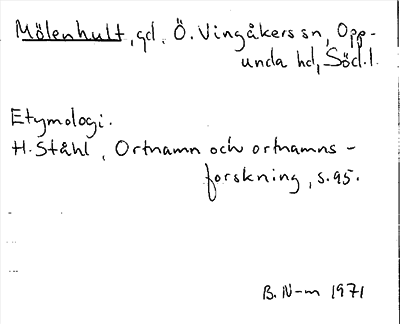 Mölenhult, gd. Ö. Vingåkers sn, Opp-
unda hd, Söd.l.
Etymologi.
H. Ståhl, Ortnamn och ortnamns-
forskning, s. 95.
B. N-m 1971